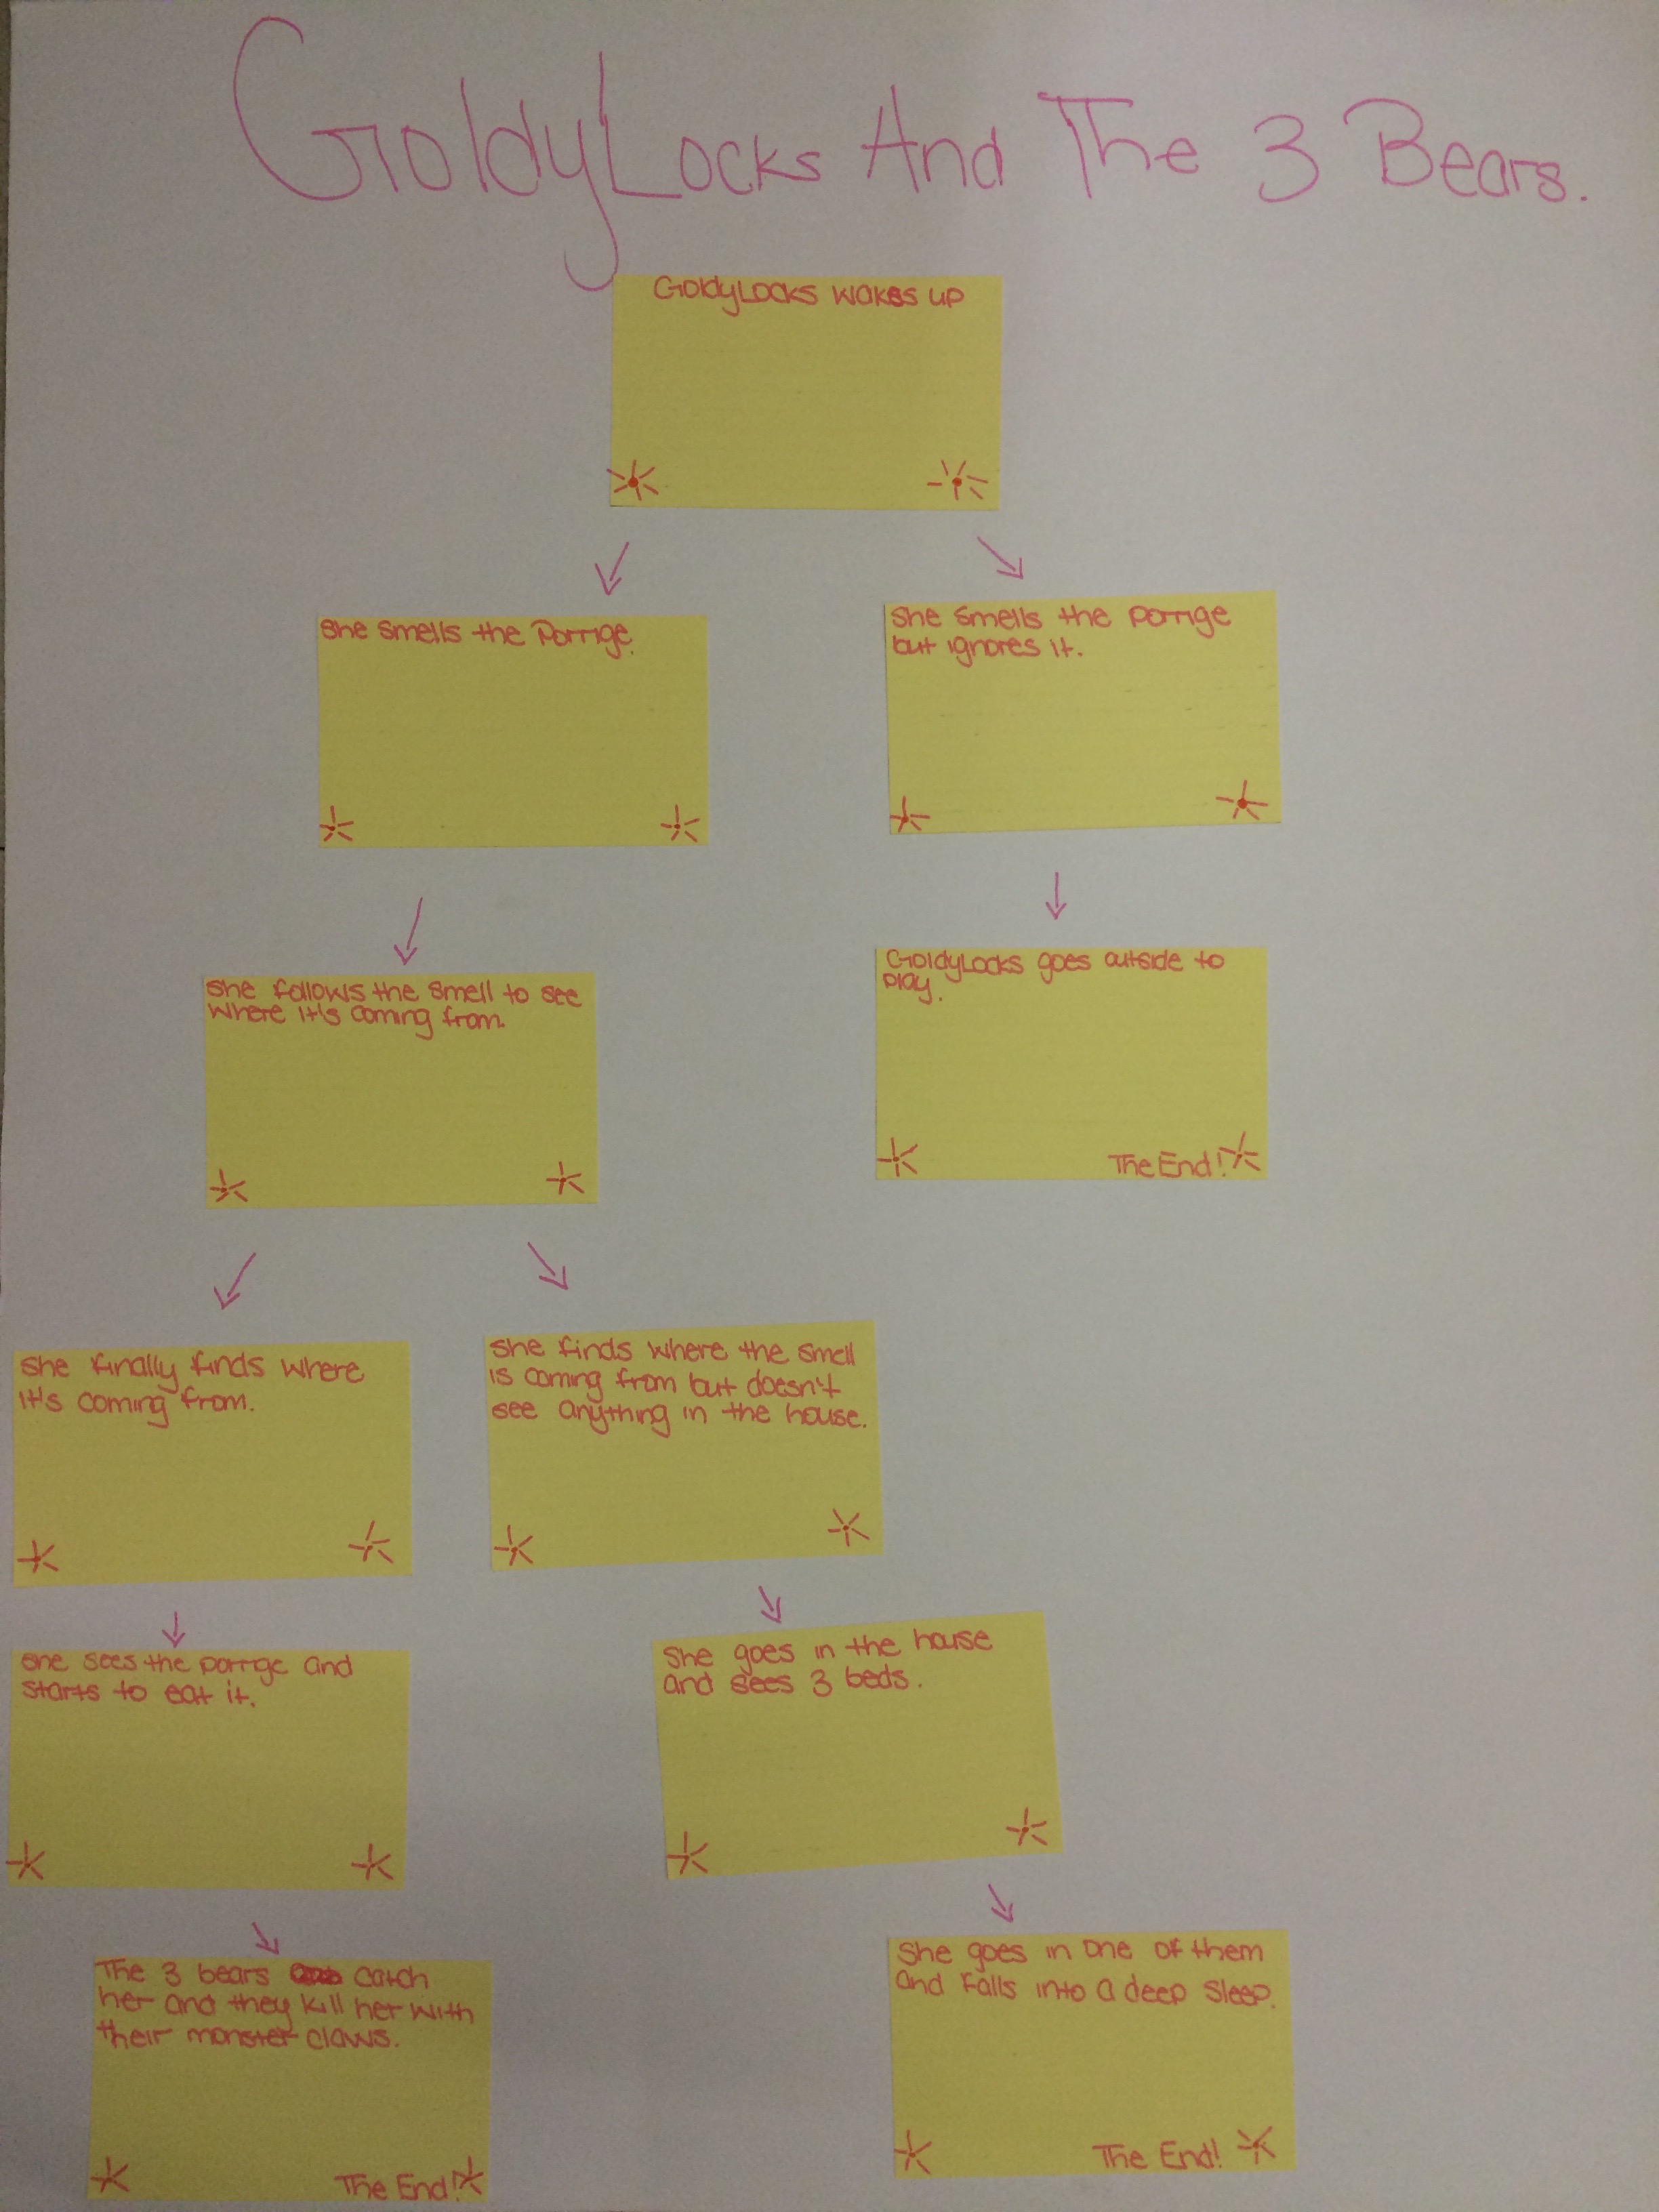 GoldyLocks And The 3 Bears.
GoldyLocks wakes up
She smells the Porrige.
She smells the porrige
but ignores it.
She follows the smell to see
where it's coming from.
GoldyLocks goes outside to
play.
The End!
She finally finds where
it's coming from.
She finds where the smell
is coming from but doesn't
see anything in the house.
She sees the porrige and
starts to eat it.
She goes in the house
and sees 3 beds.
The 3 bears catch
her and they kill her with
their monster claws.
The End!
She goes in one of them
and Falls into a deep sleep.
The End!